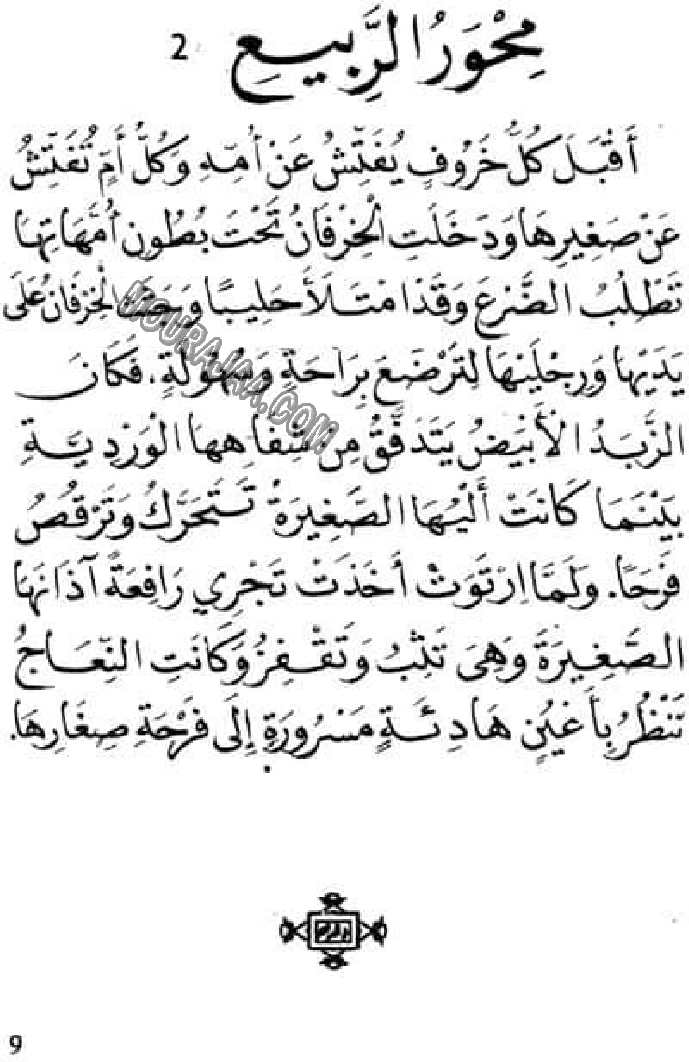 مِحْوَرُ الرَّبِيعِ 2
أَقْبَلَ كُلُّ خَرُوفٍ يُفَتِّشُ عَنْ أُمِّهِ وَكُلُّ أُمٍّ تُفَتِّشُ
عَنْ صَغِيرِهَا وَدَخَلَتِ الْخِرْفَانُ تَحْتَ بُطُونِ أُمَّهَاتِهَا
تَطْلُبُ الضَّرْعَ وَقَدْ امْتَلَأَ حَلِيبًا وَجَثَتِ الْخِرْفَانُ عَلَى
يَدَيْهَا وَرِجْلَيْهَا لِتَرْضَعَ بِرَاحَةٍ وَسُهُولَةٍ. فَكَانَ
الزَّبَدُ الْأَبْيَضُ يَتَدَفَّقُ مِنْ شِفَاهِهَا الْوَرْدِيَّةِ
بَيْنَمَا كَانَتْ أَلْيُهَا الصَّغِيرَةُ تَتَحَرَّكُ وَتَرْقُصُ
فَرَحًا. وَلَمَّا ارْتَوَتْ أَخَذَتْ تَجْرِي رَافِعَةً آذَانَهَا
الصَّغِيرَةَ وَهِيَ تَثِبُ وَتَقْفِزُ وَكَانَتِ النِّعَاجُ
تَنْظُرُ بِأَعْيُنٍ هَادِئَةٍ مَسْرُورَةٍ إِلَى فَرْحَةِ صِغَارِهَا.
MOURAJAA.COM
9